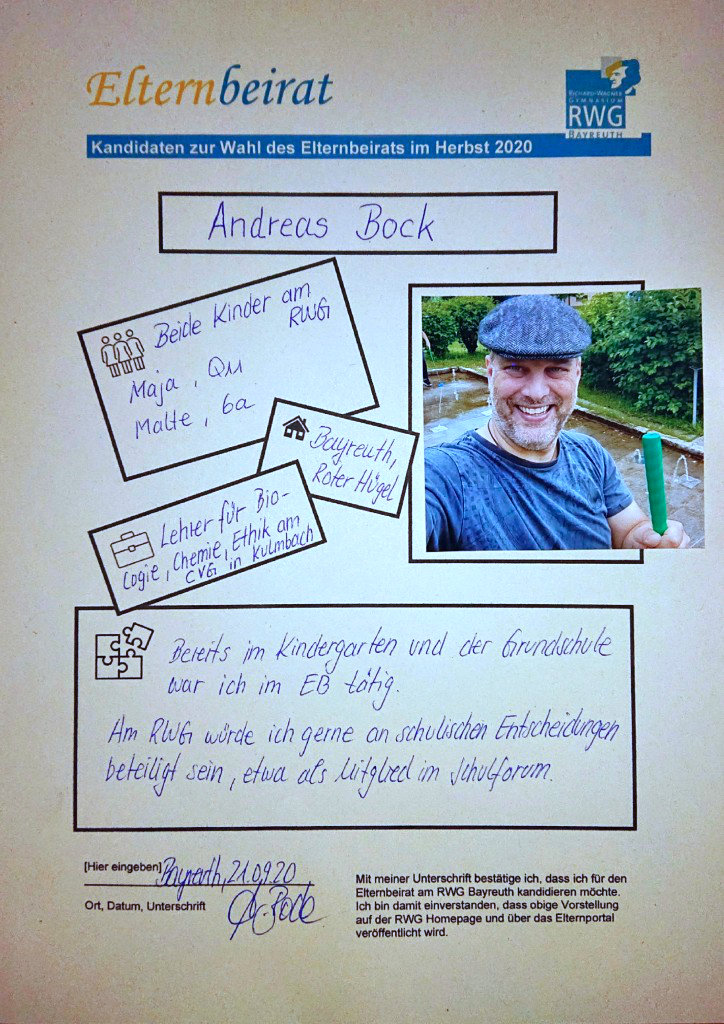 Elternbeirat
RICHARD-WAGNER
GYMNASIUM
RWG
BAYREUTH
Kandidaten zur Wahl des Elternbeirats im Herbst 2020
Andreas Bock
Beide Kinder am
RWG
Maja, Q11
Malte, 6a
Bayreuth,
Roter Hügel
Lehrer für Bio-
logie, Chemie, Ethik am
CVG in Kulmbach
Bereits im Kindergarten und der Grundschule
war ich im EB tätig.
Am RWG würde ich gerne an schulischen Entscheidungen
beteiligt sein, etwa als Mitglied im Schulforum.
[Hier eingeben] Bayreuth, 21.09.20
Ort, Datum, Unterschrift A. Bock
Mit meiner Unterschrift bestätige ich, dass ich für den
Elternbeirat am RWG Bayreuth kandidieren möchte.
Ich bin damit einverstanden, dass obige Vorstellung
auf der RWG Homepage und über das Elternportal
veröffentlicht wird.